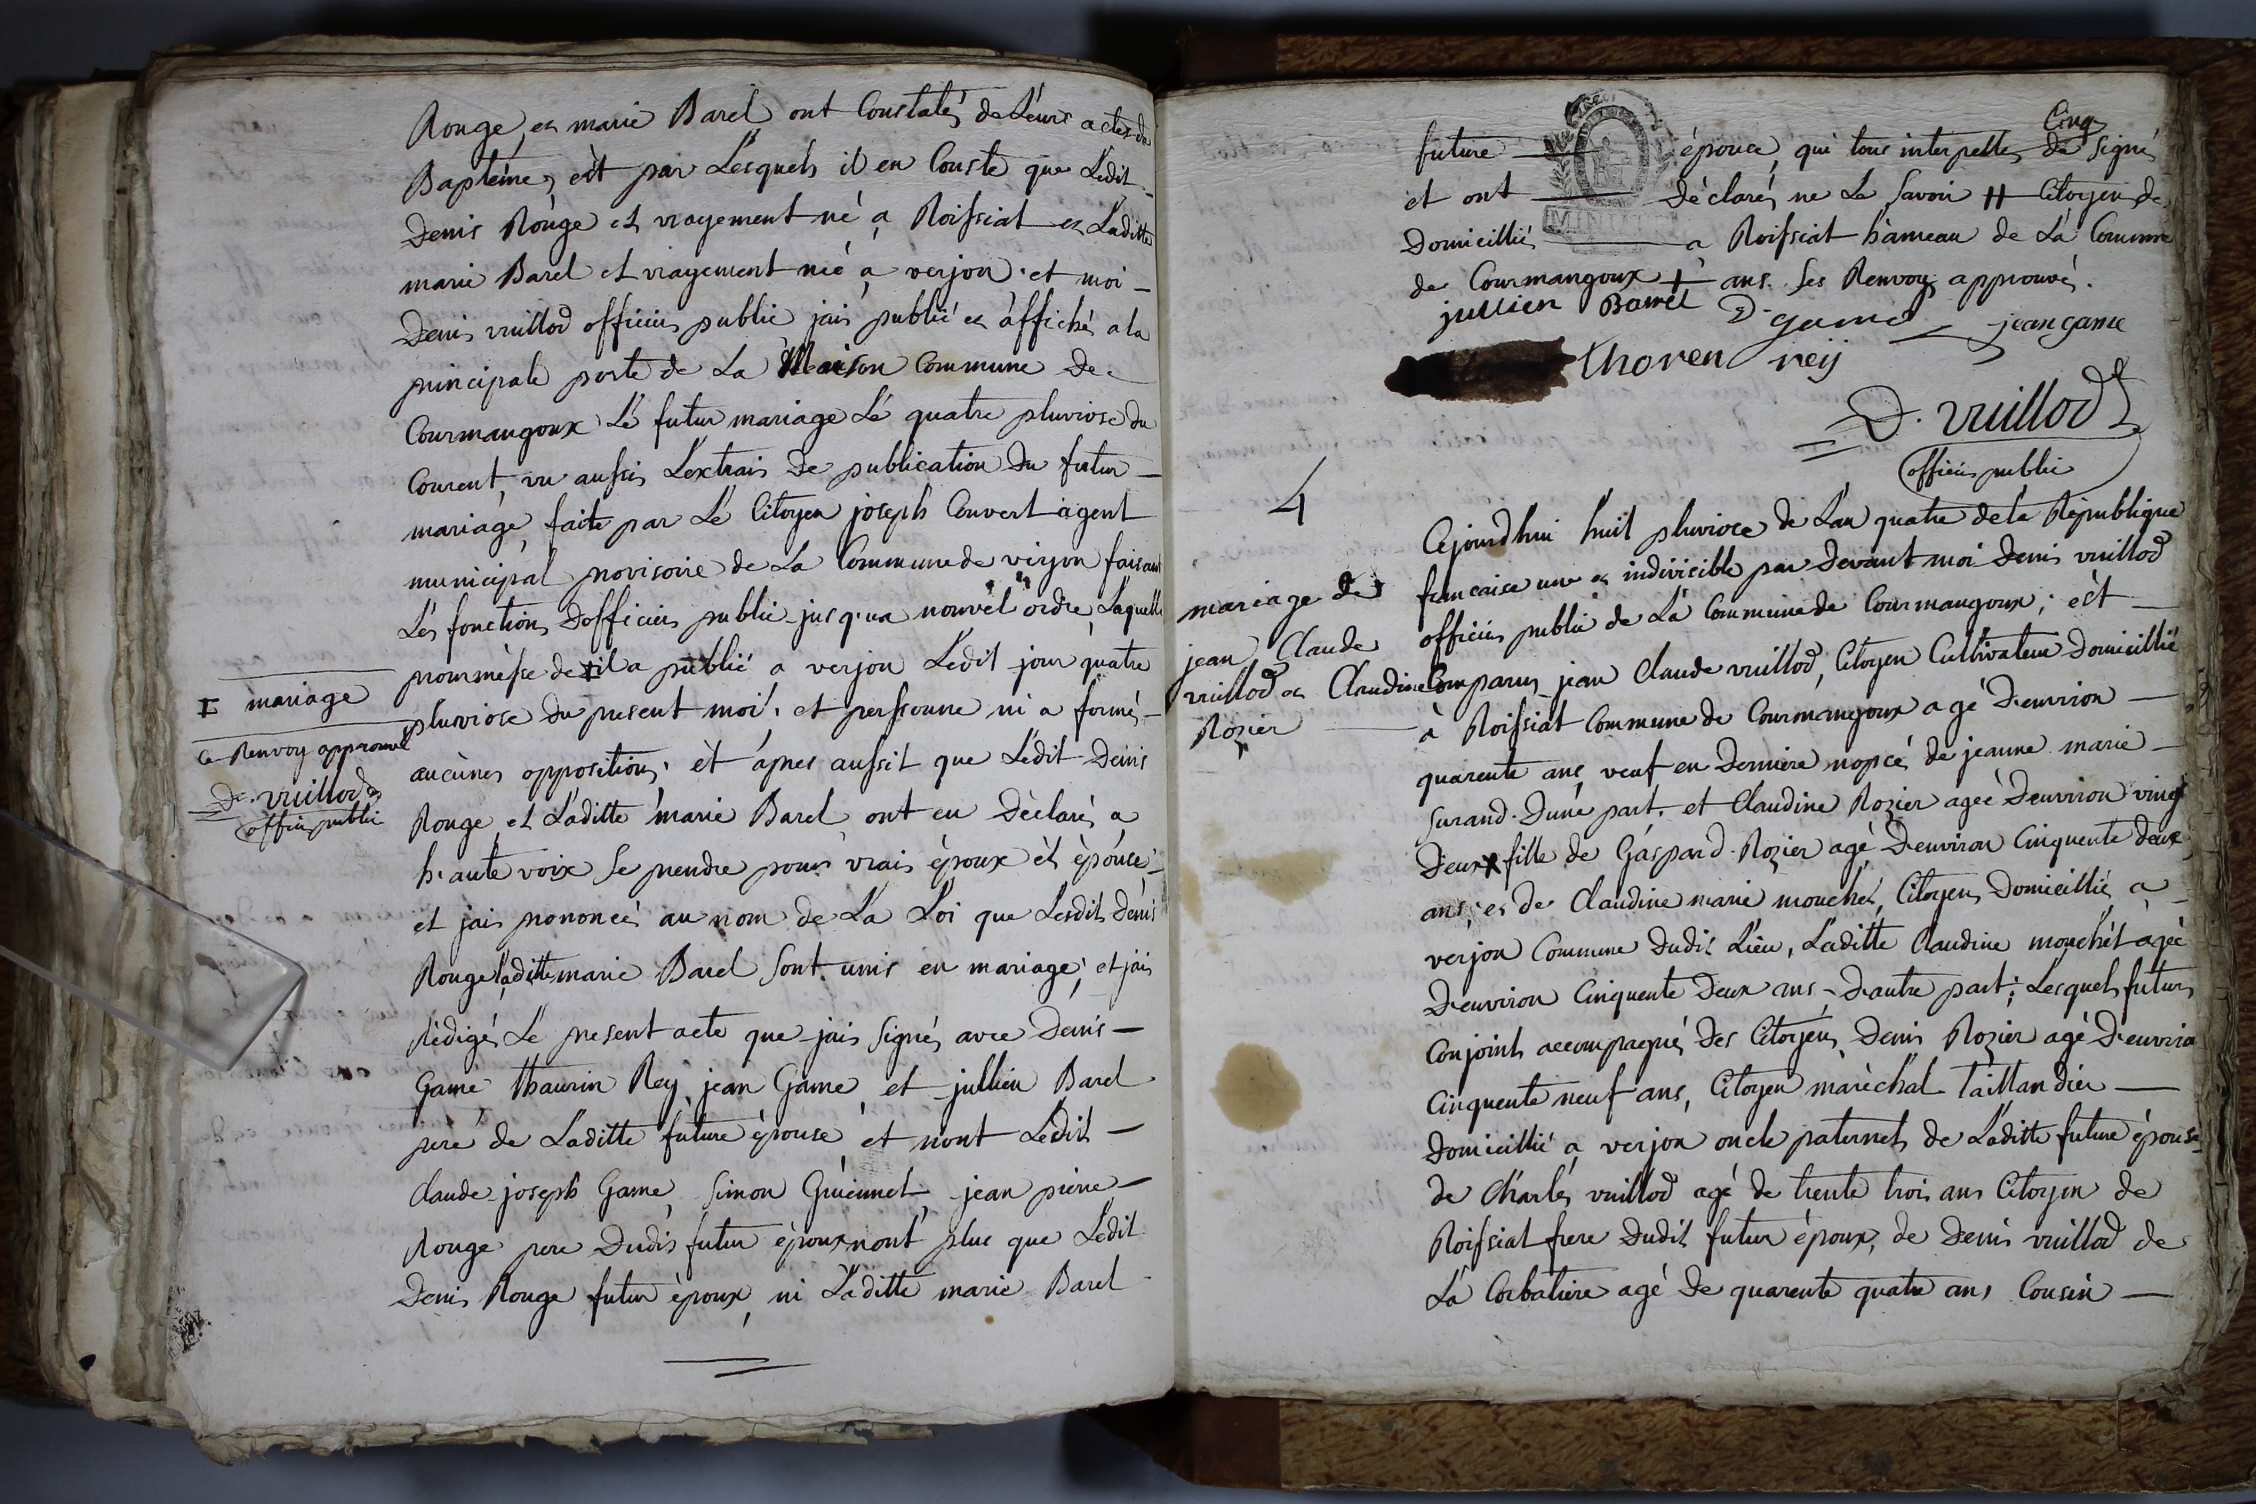 Rouge, et marie Barel ont Constatés de Leurs actes de
Baptéme, èt par Lesquels il en Conste que Ledit
Denis Rouge et vrayement né a Roissiat et Laditte
marie Barel et vrayement neé a verjon. et moi
Denis vuillod officier public jais publié et àffiché a la
principale porte de La Maison Commune de
Courmangoux Lé futur mariage Lé quatre pluviose du
Courent, vu aussis Lextrais de publication du futur
mariage, faite par Lé Citoyen joseph Convert agent
municipal provisoire de La Commune de verjon faisant
Lés fonctions Dofficier public jusq'ua nouvel ordre, Laquelle
prommèsse de ‡ il a publié a verjon Ledit jour quatre
‡ mariage
pluviose du present moi. et perssonne ni a formé
Ce Renvoy approuvé
aucunes opposition. èt àpres aussit que Lédit Denis
D. vuillod
officier public
Rouge et Laditte marie Barel ont eu Dèclaré a
h'aute voix Se prendre pour vrais époux èt èpouce
et jais prononcé au nom de La Loi que Lesdits Denis
Rouge laditte marie Barel Sont unis en mariage; et jais
Rédigé Le present acte que jais Signé avec Denis
Game Thaurin Rey, jean Game, et jullien Barel
pere de Laditte future épouse et nont Ledit
Claude joseph Game, Simon Guiennet, jean piere
Rouge pere Dudis futur époux nont plus que Ledit
Denis Rouge futur époux, ni Laditte marie Barel
future épouce, qui tous interpellés de Signé
Cinq
et ont Déclaré, ne Le Savoir ++ Citoyen de
Domicillié a Roissiat hàmeau de La Commune
de Courmangoux + ans. Ses Renvoy approuvé.
jullien Barrel D. game jean game
thoren reij
D. vuillod
officier public
4
Cejourdhui huit pluviose de Lan quatre de la République
francaise une et indivicible par Devant moi Denis vuillod
officier public de La Commune de Courmangoux; èst
mariage de
jean Claude
vuillod et Claudine
Rozier
Comparus jean Claude vuillod, Citoyen Cultivateur Domicillié
à Roissiat Commune de Courmangoux agé Denvirion
quarente ans veuf en Derniere nopcé de jeanne marie
Surand. Dune part. et Claudine Rozier ageé Denviron vingt
Deux + fille de Gaspard Rozier agé Denviron Cinquente deux
ans, et de Claudine marie mouchet, Citoyens Domicillié a
vèrjon Commune Dudit Lieu, Laditte Claudine mouchét agée
Denviron Cinquente Deux ans, Dautre part; Lesquels futurs
Conjoints accompagnés Des Citoyens, Denis Rozier agé Denviron
Cinquente neuf ans, Citoyen maréchal Taillandier
Domicillié a verjon oncle paternels de Laditte future épouse
de Charles vuillod agé de trente trois ans Citoyen de
Roissiat frere Dudit futur époux, de Denis vuillod de
La Corbatiere agé de quarente quatre ans Cousin